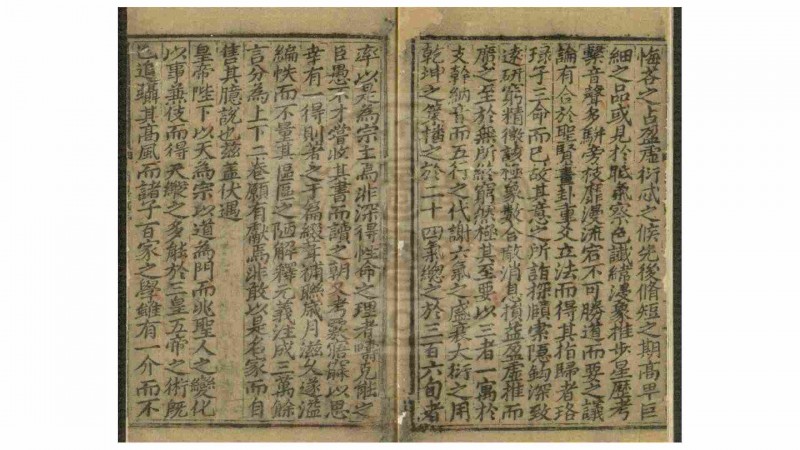 悔吝之占盈虛衍忒之候先後脩短之期高卑巨
細之品或見於眡氣察色讖緯漫象推步星歷考
繫音聲多駢旁枝靡漫流宕不可勝道而要之議
論有合於聖賢畫卦重爻立法而得其指歸者珞
琭子三命而已故其意之所詣探賾索隱鈎深致
遠研窮精微該極象數合散消息損益盈虛推而
廣之至於無所終窮然極其至要以三者一寓於
支幹納音而五行之代謝六氣之盛衰大衍之用
乾坤之策播之於二十四氣總之於三百六旬者
率以是為宗主焉非深得性命之理者疇克能之
臣愚不才嘗收其書而讀之朝又考覈解以思
幸有一得則著之于篇緝葺補聯歲月滋久遂溢
編帙而不量其區區之陋解釋元義注成三萬餘
言分為上下二卷願有獻焉非敢以是名家而自
售其臆說也茲蓋伏遇
皇帝陛下以天為宗以道為門而兆聖人之變化
以事兼伎而得天縱之多能於三皇五帝之術既
已追躡其高風而諸子百家之學雖有一介而不